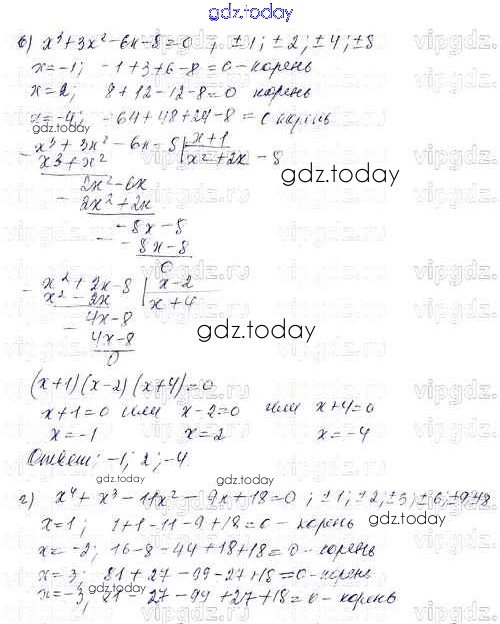 gdz.today
в) x³+3x²-6x-8=0 ; ±1; ±2; ±4; ±8
x=-1; -1+3+6-8=0-корень
x=2; 8+12-12-8=0 корень
x=-4; -64+48+24-8=0 корень
x³+3x²-6x-8 | x+1
x³+x² | x²+2x-8
2x²-6x
2x²+2x
-8x-8
-8x-8
0
gdz.today
x²+2x-8 | x-2
x²-2x | x+4
4x-8
4x-8
0
gdz.today
(x+1)(x-2)(x+4)=0
x+1=0 или x-2=0 или x+4=0
x=-1 x=2 x=-4
Ответ: -1; 2; -4
gdz.today
г) x⁴+x³-11x²-9x+18=0 ; ±1; ±2; ±3; ±6; ±9
x=1; 1+1-11-9+18=0-корень
x=-2; 16-8-44+18+18=0-корень
x=3; 81+27-99-27+18=0-корень
x=-3; 81-27-99+27+18=0-корень
gdz.today
vipgdz.ru